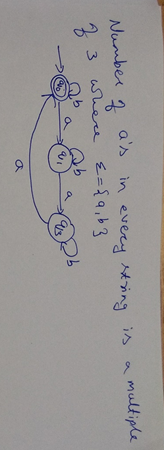 Number of a's in every string is a multiple
of 3 where Σ={a,b}
q0
b
a
q1
b
a
q2
b
a